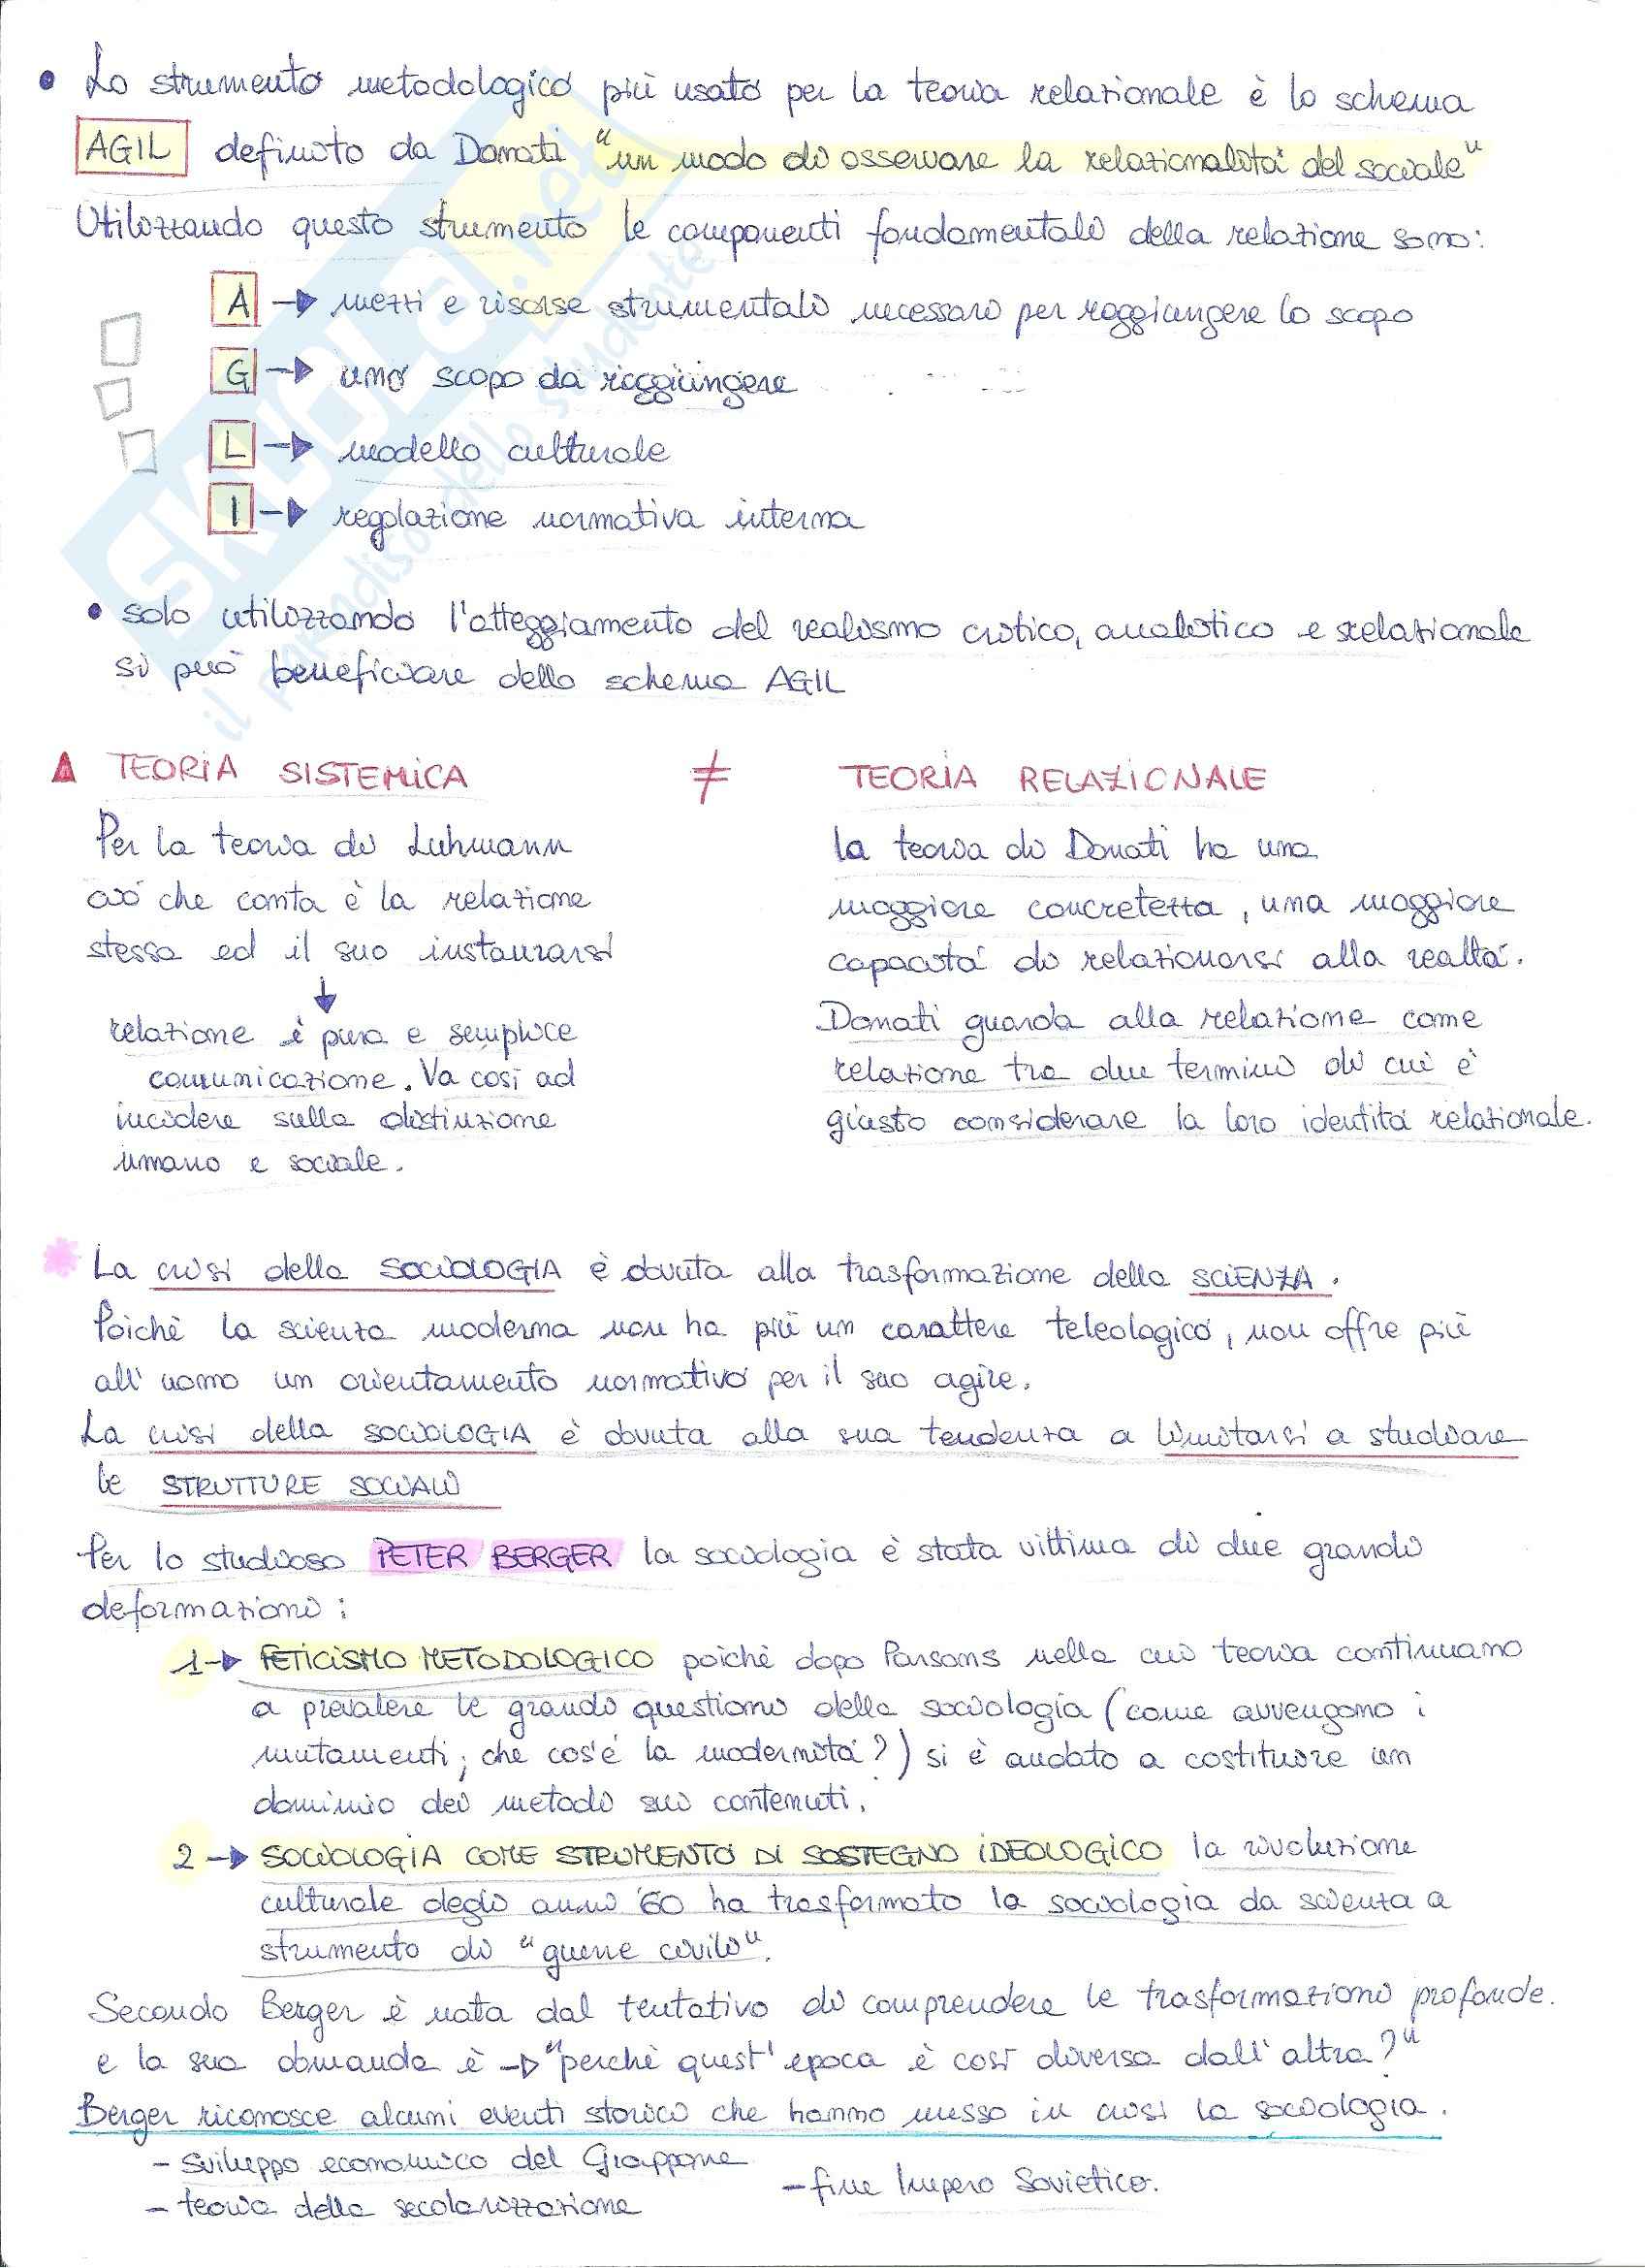 • Lo strumento metodologico più usato per la teoria relazionale è lo schema
AGIL definito da Donati "un modo di osservare la relazionalità del sociale"
Utilizzando questo strumento le componenti fondamentali della relazione sono:
A → mezzi e risorse strumentali necessari per raggiungere lo scopo
G → uno scopo da raggiungere
L → modello culturale
I → regolazione normativa interna
• solo utilizzando l'atteggiamento del realismo critico, analitico e relazionale
si può beneficiare dello schema AGIL
TEORIA SISTEMICA ≠ TEORIA RELAZIONALE
Per la teoria di Luhmann
ciò che conta è la relazione
stessa ed il suo instaurarsi
↓
relazione è pura e semplice
comunicazione. Va così ad
incidere sulla distinzione
umano e sociale.
la teoria di Donati ha una
maggiore concretezza, una maggiore
capacità di relazionarsi alla realtà.
Donati guarda alla relazione come
relazione tra due termini di cui è
giusto considerare la loro identità relazionale.
* La crisi della SOCIOLOGIA è dovuta alla trasformazione della SCIENZA.
Poichè la scienza moderna non ha più un carattere teleologico, non offre più
all'uomo un orientamento normativo per il suo agire.
La crisi della SOCIOLOGIA è dovuta alla sua tendenza a limitarsi a studiare
le STRUTTURE SOCIALI
Per lo studioso PETER BERGER la sociologia è stata vittima di due grandi
deformazioni:
1→ FETICISMO METODOLOGICO poichè dopo Parsons nella cui teoria continuano
a prevalere le grandi questioni della sociologia (come avvengono i
mutamenti; che cos'è la modernità?) si è andato a costituire un
dominio dei metodi sui contenuti.
2→ SOCIOLOGIA COME STRUMENTO DI SOSTEGNO IDEOLOGICO la rivoluzione
culturale degli anni '60 ha trasformato la sociologia da scienza a
strumento di "guerre civili".
Secondo Berger è nata dal tentativo di comprendere le trasformazioni profonde.
e la sua domanda è → "perchè quest'epoca è così diversa dall'altra?"
Berger riconosce alcuni eventi storici che hanno messo in crisi la sociologia.
- sviluppo economico del Giappone
- fine Impero Sovietico.
- teoria della secolarizzazione
SKUOLA.net
il paradiso dello studente